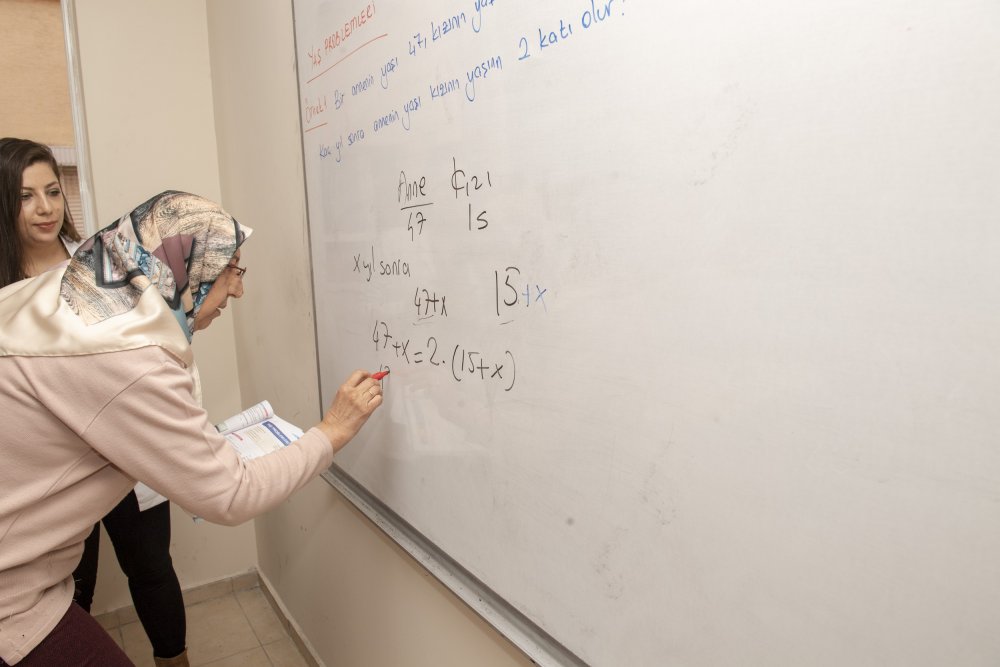 YAŞ PROBLEMLERİ
Örnek: Bir annenin yaşı 47, kızının
Kaç yıl sonra annenin yaşı kızının yaşının 2 katı olur?
Anne Kızı
47 15
x yıl sonra
47+x 15+x
47+x=2.(15+x)